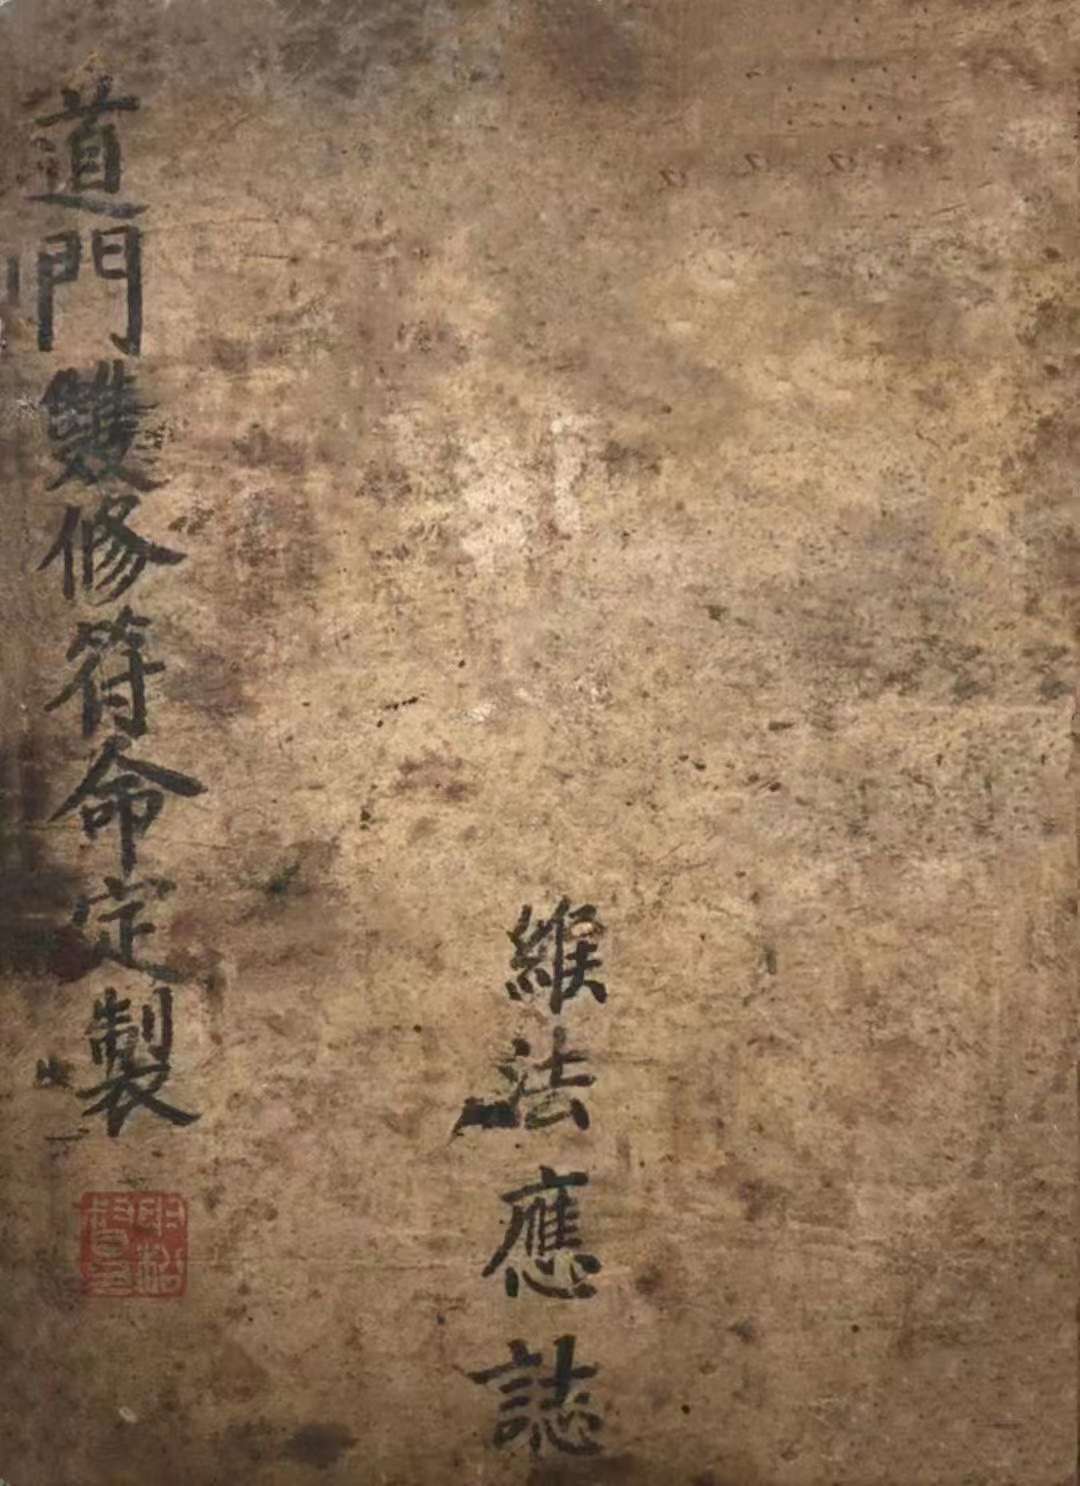 道門雙修符命定製
法應誌